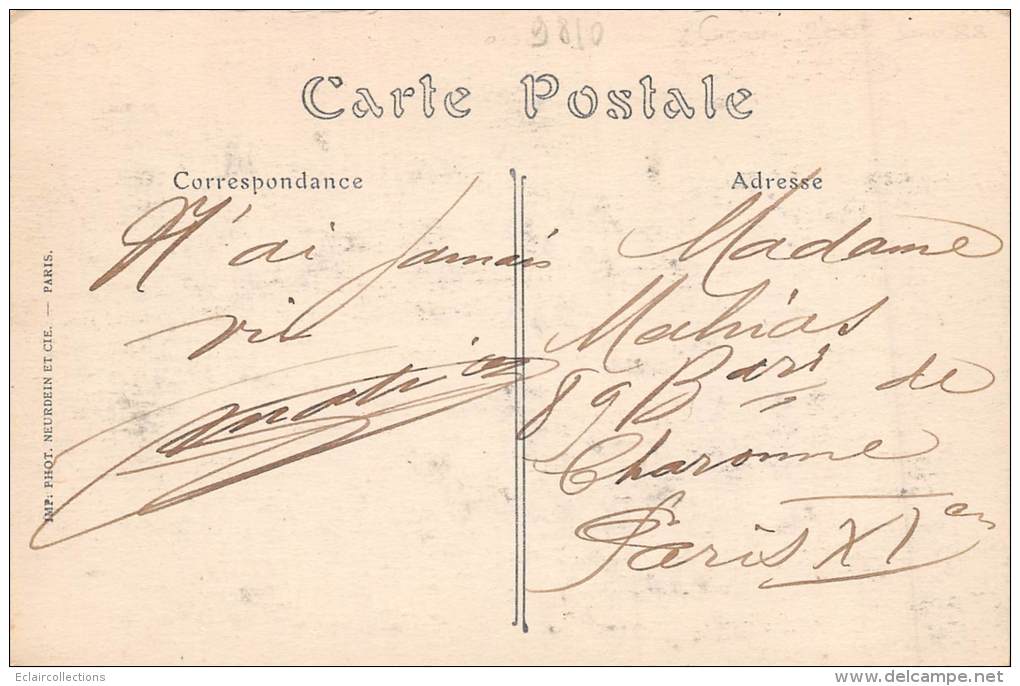 9810
Carte Postale
Correspondance
N'ai jamais
vu
Mathias
Adresse
Madame
Mahias
89 Bard de
Charonne
Paris XIem
IMP. PHOT. NEURDEIN ET CIE. — PARIS.
Eclaircollections
www.delcampe.net